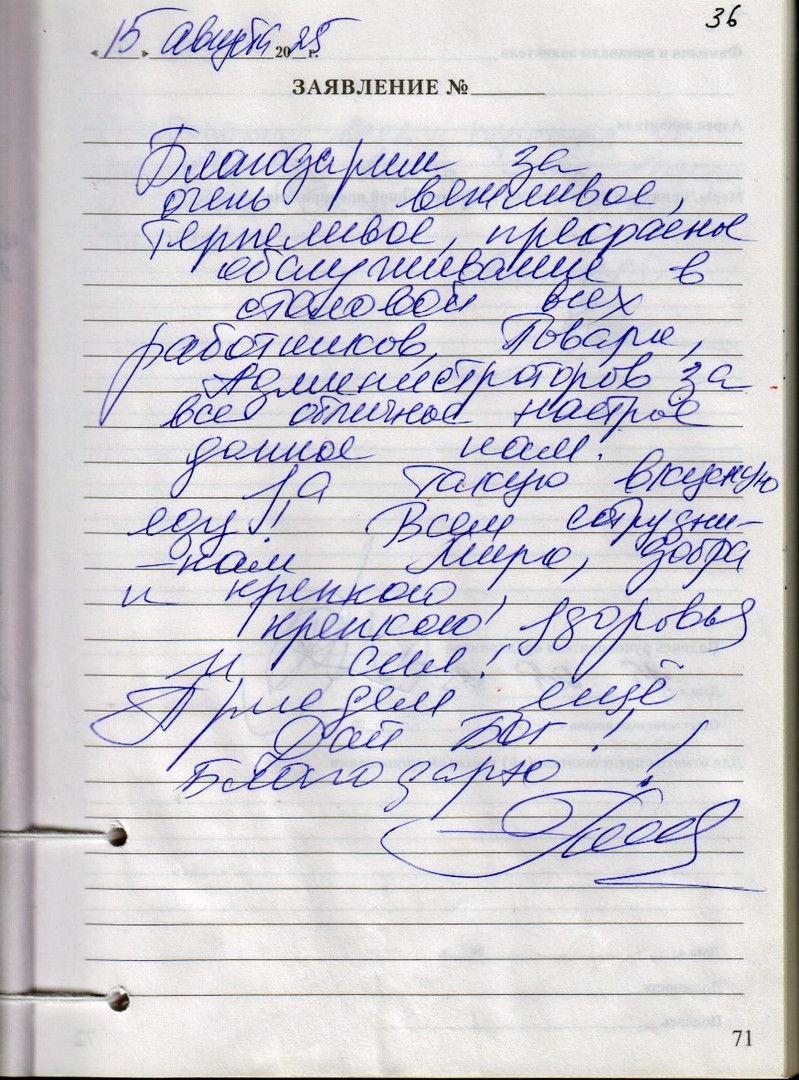 36
«15» августа 2025 г.
ЗАЯВЛЕНИЕ №
Благодарим за
очень вежливое,
терпеливое, прекрасное
обслуживание в
столовой всех
работников, Повара,
Администраторов за
все отличное настрое
данное нам.
За такую вкусную
еду! Всем сотрудни-
-кам Мира, добра
и крепкого,
крепкого здоровья
и сил!
Приедем ещё
Дай Бог!
Благодарю!
71